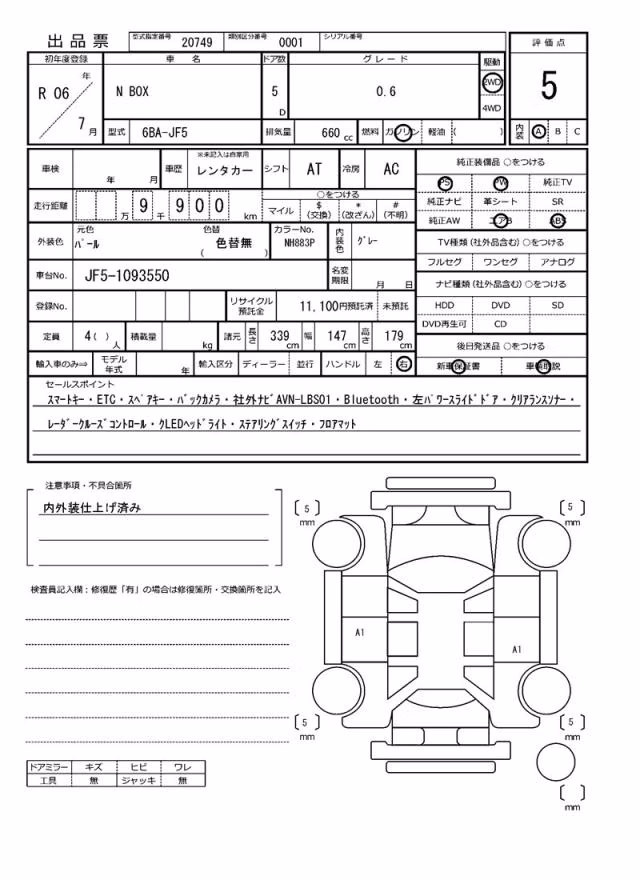 出品票 型式指定番号 20749 類別区分番号 0001 シリアル番号
初年度登録 車名 ドア数 グレード 駆動 評価点
R 06 年 7 月 N BOX 5 D 0.6 2WD 4WD 5
型式 6BA-JF5 排気量 660 cc 燃料 ガソリン 軽油 ( ) 内装 A B C
車検 年 月 車歴 ※未記入は自家用 レンタカー シフト AT 冷房 AC 純正装備品 ○をつける
PS PW 純正TV
走行距離 万 9 千 9 0 0 km ○をつける マイル $(交換) *(改ざん) #(不明) 純正ナビ 革シート SR
純正AW エアB ABS
外装色 元色 パール 色替 色替無 ( ) カラーNo. NH883P 内装色 グレー TV種類(社外品含む)○をつける
フルセグ ワンセグ アナログ
車台No. JF5-1093550 名変期限 月 日 ナビ種類(社外品含む)○をつける
登録No. リサイクル預託金 11,100円預託済 未預託 HDD DVD SD
DVD再生可 CD
定員 4( )人 積載量 kg 諸元 長さ 339 cm 幅 147 cm 高さ 179 cm 後日発送品 ○をつける
輸入車のみ⇒ モデル年式 年 輸入区分 ディーラー 並行 ハンドル 左 右 新車保証書 車輌取説
セールスポイント
スマートキー・ETC・スペアキー・バックカメラ・社外ナビAVN-LBS01・Bluetooth・左パワースライドドア・クリアランスソナー・
レーダークルーズコントロール・クLEDヘッドライト・ステアリングスイッチ・フロアマット
注意事項・不具合箇所
内外装仕上げ済み
検査員記入欄:修復歴「有」の場合は修復箇所・交換箇所を記入
5 mm
5 mm
A1
A1
5 mm
5 mm
mm
ドアミラー キズ ヒビ ワレ
工具 無 ジャッキ 無